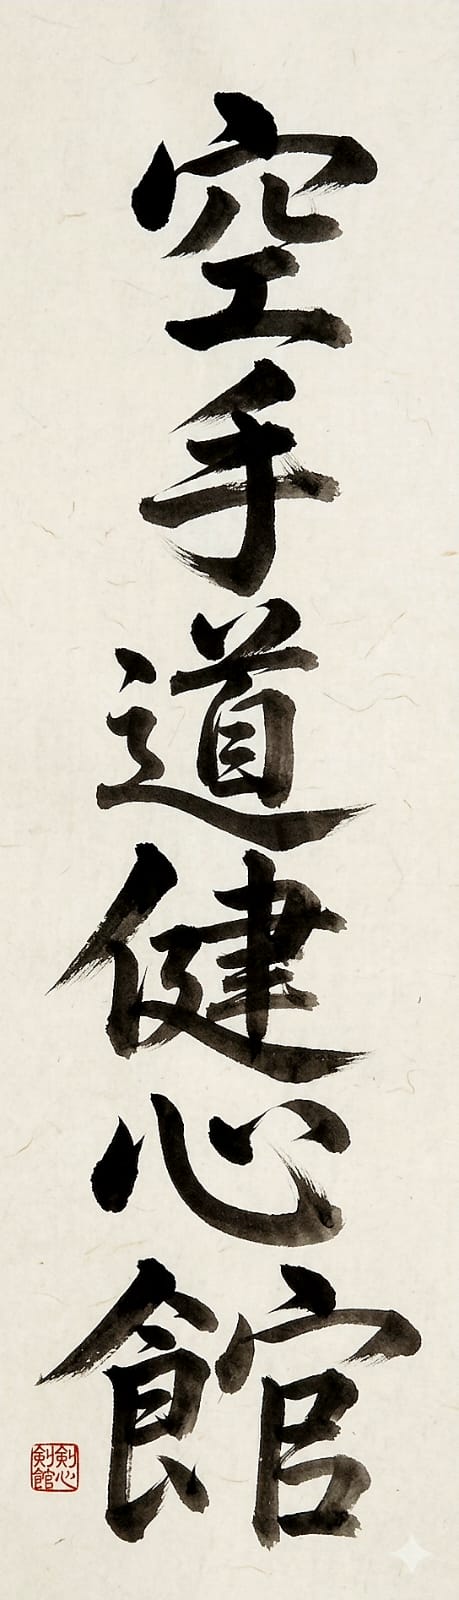 空手道健心館
剣心
剣館